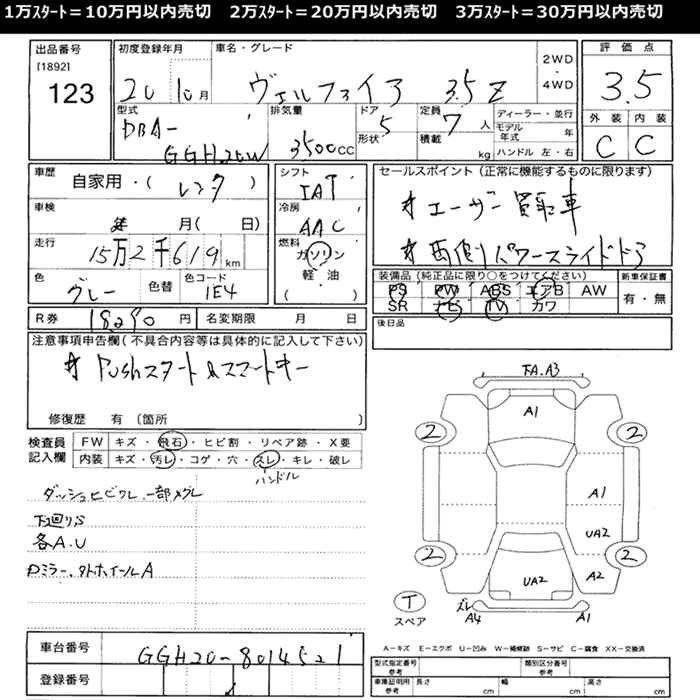 1万スタート＝10万円以内売切　2万スタート＝20万円以内売切　3万スタート＝30万円以内売切
出品番号 初度登録年月 車名・グレード 評価点
[1892] 2WD
123 20 10月 ヴェルファイア 3.5Z ・ 3.5
4WD
型式 排気量 ドア 定員 ディーラー・並行 外装 内装
DBA- 5 7人 モデル年式 年 C C
GGH20W 3500cc 形状 積載 kg ハンドル 左・右
車歴 シフト セールスポイント(正常に機能するものに限ります)
自家用・(レンタ) IAT
車検 冷房 # ユーザー買取車
年 月(日) AAC
走行 燃料 # 両側パワースライドドア
15万2千619km ガソリン
色 色替 色コード 軽・油 装備品(純正品に限り○をつけてください) 新車保証書
グレー 1E4 ( ) PS PW ABS エアB AW 有・無
SR ナビ TV カワ
R券 18290円 名変期限 月 日 後日品
注意事項申告欄(不具合内容等は具体的に記入して下さい)
# Pushスタート&スマートキー
修復歴 有〔箇所 〕
検査員 FW キズ・飛石・ヒビ割・リペア跡・X要
記入欄 内装 キズ・汚レ・コゲ・穴・スレ・キレ・破レ
ハンドル
ダッシュヒビワレ、一部メクレ
下廻りS
各A.U
Dミラー、タトホイールA
FA.A3
A1
2 2
A1
UA2
2 2
UA2 A2
T スレ
スペア A4 A1
A-キズ E-エクボ U-凹み W-補修跡 S-サビ C-腐食 XX-交換済
車台番号 GGH20-8014521
登録番号
型式指定番号 参考 類別区分番号 参考
車庫証明用 参考 長さ cm 幅 cm 高さ cm